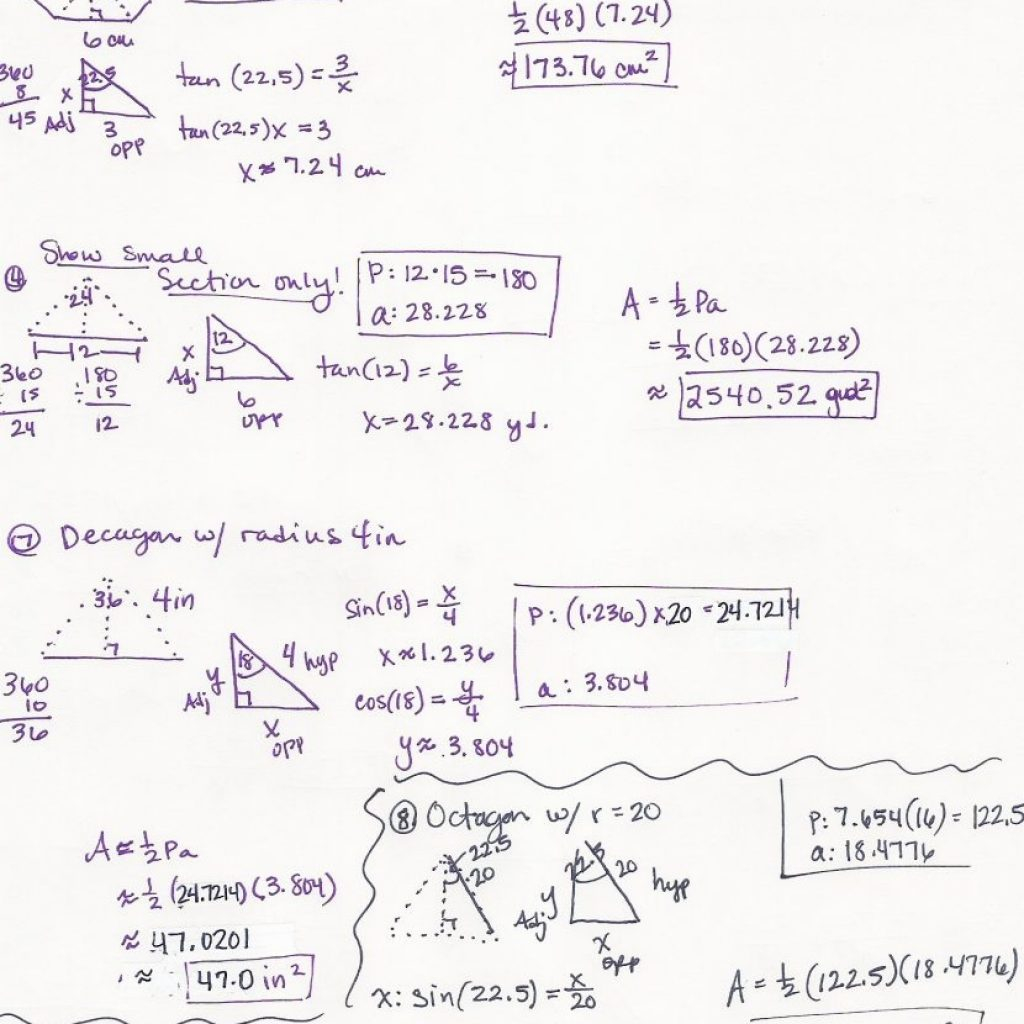 6 cm
360
8
45
22.5
x
Adj
3
opp
tan (22.5) = 3/x
tan(22.5)x = 3
x ≈ 7.24 cm
1/2 (48) (7.24)
≈ 173.76 cm²
④ Show small
Section only!
24
12
360
÷ 15
24
180
÷ 15
12
12
x
Adj
6
opp
P: 12 · 15 = 180
a: 28.228
tan(12) = 6/x
x = 28.228 yd.
A = 1/2 Pa
= 1/2 (180)(28.228)
≈ 2540.52 yd²
⑦ Decagon w/ radius 4in
36
4in
360
10
36
18
y
Adj
4 hyp
x
opp
sin(18) = x/4
x ≈ 1.236
cos(18) = y/4
y ≈ 3.804
P: (1.236) x 20 = 24.7214
a: 3.804
A ≈ 1/2 Pa
≈ 1/2 (24.7214)(3.804)
≈ 47.0201
≈ 47.0 in²
⑧ Octagon w/ r = 20
22.5
20
22.5
y
Adj
20
hyp
x
opp
x: sin(22.5) = x/20
P: 7.654(16) = 122.5
a: 18.4776
A = 1/2 (122.5)(18.4776)